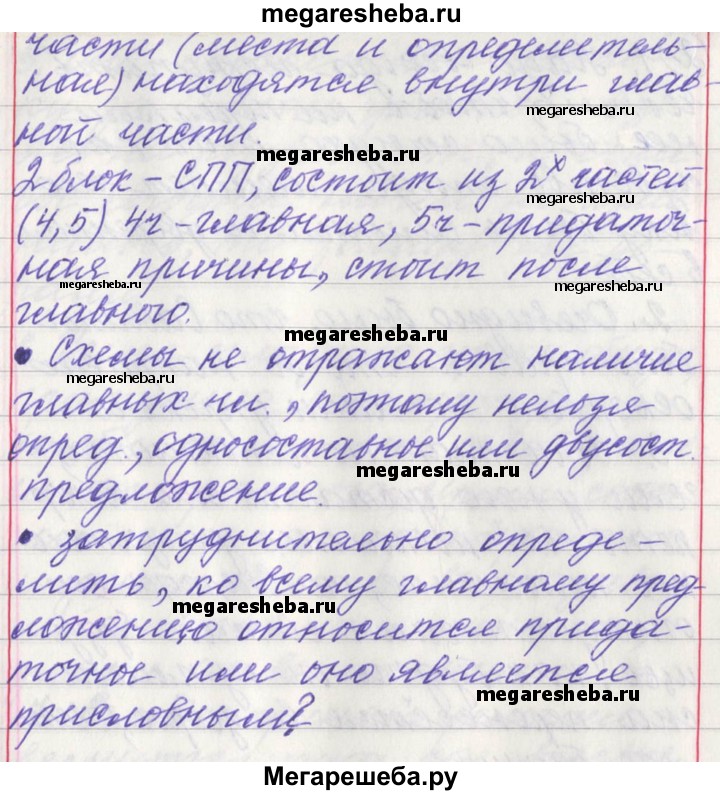 megaresheba.ru
части (места и определитель-
ная) находятся внутри глав-
megaresheba.ru
ной части.
megaresheba.ru
2 блок – СПП, состоит из 2х частей
megaresheba.ru
(4,5) 4ч – главная, 5ч – придаточ-
ная причины, стоит после
megaresheba.ru
megaresheba.ru
главного.
megaresheba.ru
• Схемы не отражают наличие
megaresheba.ru
главных чл., поэтому нельзя
опред., односоставное или двусост.
megaresheba.ru
предложение.
• затруднительно опреде-
лить, ко всему главному пред-
megaresheba.ru
ложению относится прида-
точное или оно является
megaresheba.ru
присловным?
Мегарешеба.ру